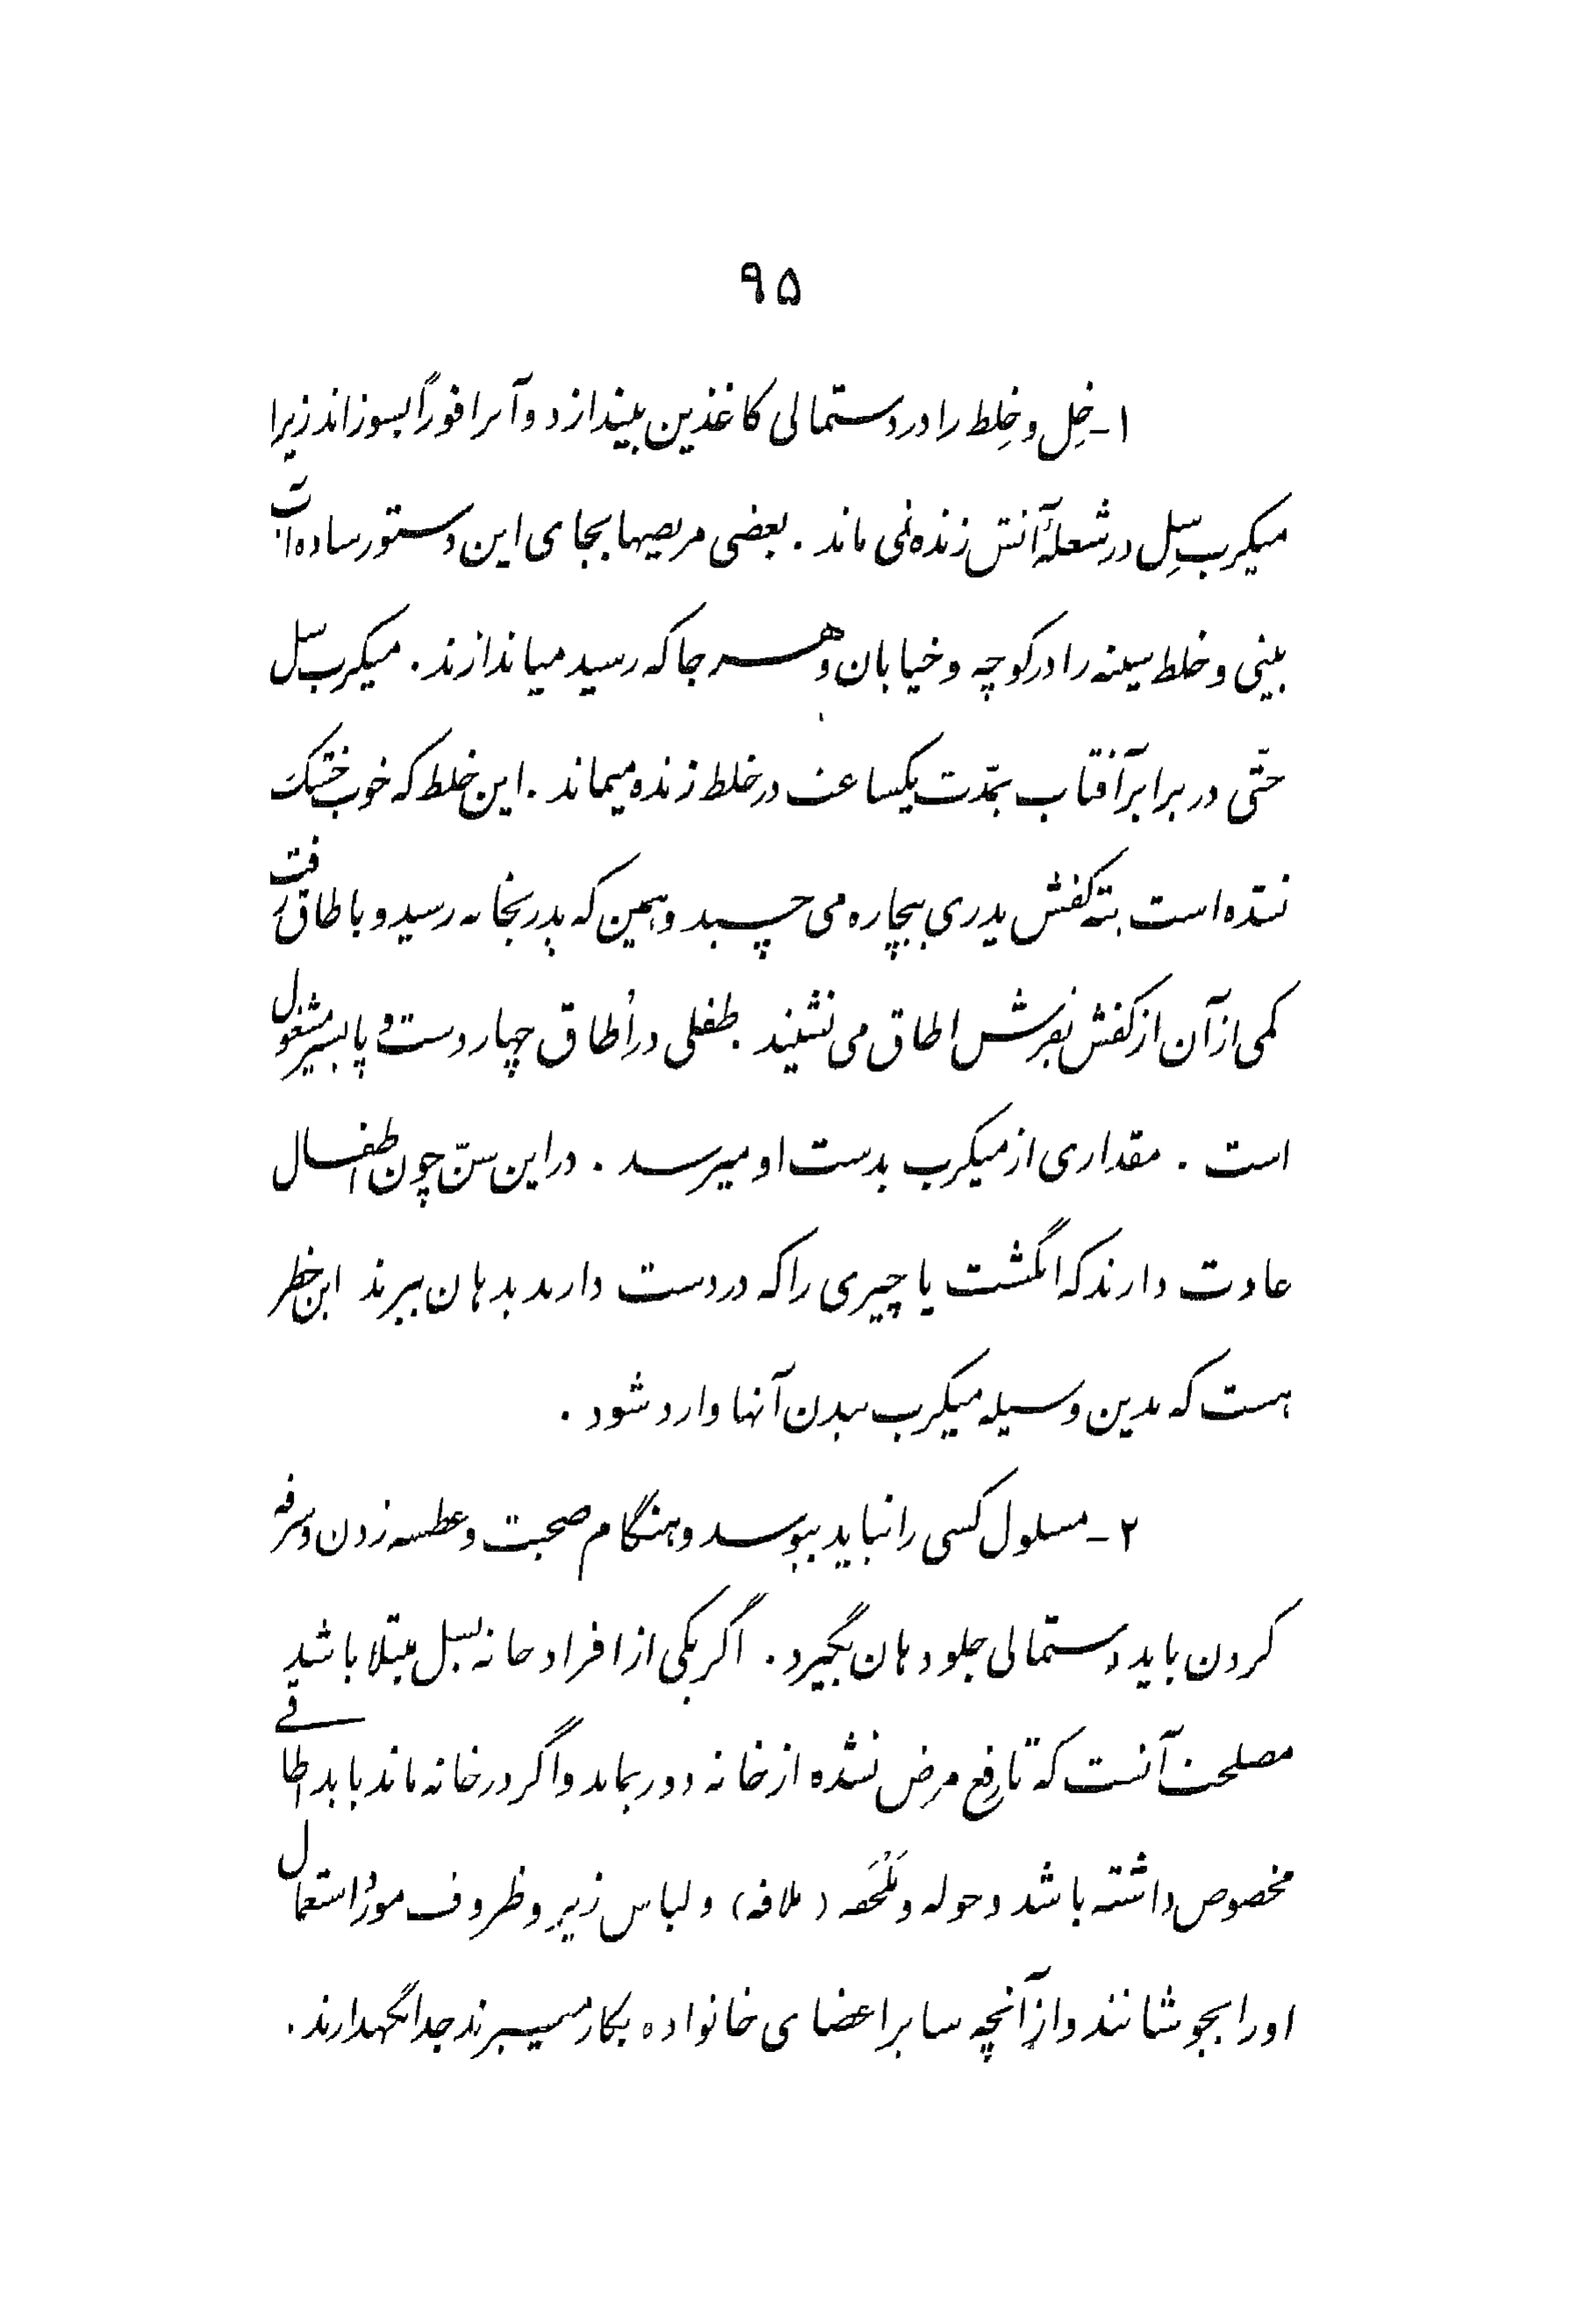 ۹۵
۱- خِل و خِلط را در دستمالی کاغذین بیندازد و آنرا فوراً بسوزاند زیرا
میکرب سِل در شعلهٔ آتش زنده نمی ماند . بعضی مریضها بجای این دستور ساده آب
بینی و خلط سینه را در کوچه و خیابان و هر جا که رسید میاندازند . میکرب سل
حتّی در برابر آفتاب بمدّت یکساعت در خلط زنده میماند . این خلط که خوب خشک
نشده است بته کفش پدری بیچاره می چسبد و همین که پدر بخانه رسید و باطاق رفت
کمی از آن از کفش بفرش اطاق می نشیند . طفلی در اُطاق چهار دست و پا بسیر مشغول
است . مقداری از میکرب بدست او میرسد . در این سنّ چون اطفال
عادت دارند که انگشت یا چیزی را که در دست دارند بدهان ببرند این خطر
هست که بدین وسیله میکرب ببدن آنها وارد شود .
۲- مسلول کسی را نباید ببوسد و هنگام صحبت و عطسه زدن و سرفه
کردن باید دستمالی جلو دهان بگیرد . اگر یکی از افراد خانه بسل مبتلا باشد
مصلحت آنست که تا رفع مرض نشده از خانه دور بماند و اگر در خانه ماند باید اطاقی
مخصوص داشته باشد و حوله و مَلْحَفه (ملافه) و لباس زیر و ظروف مورد استعمال
او را بجوشانند و از آنچه سایر اعضای خانواده بکار میبرند جدا نگهدارند .